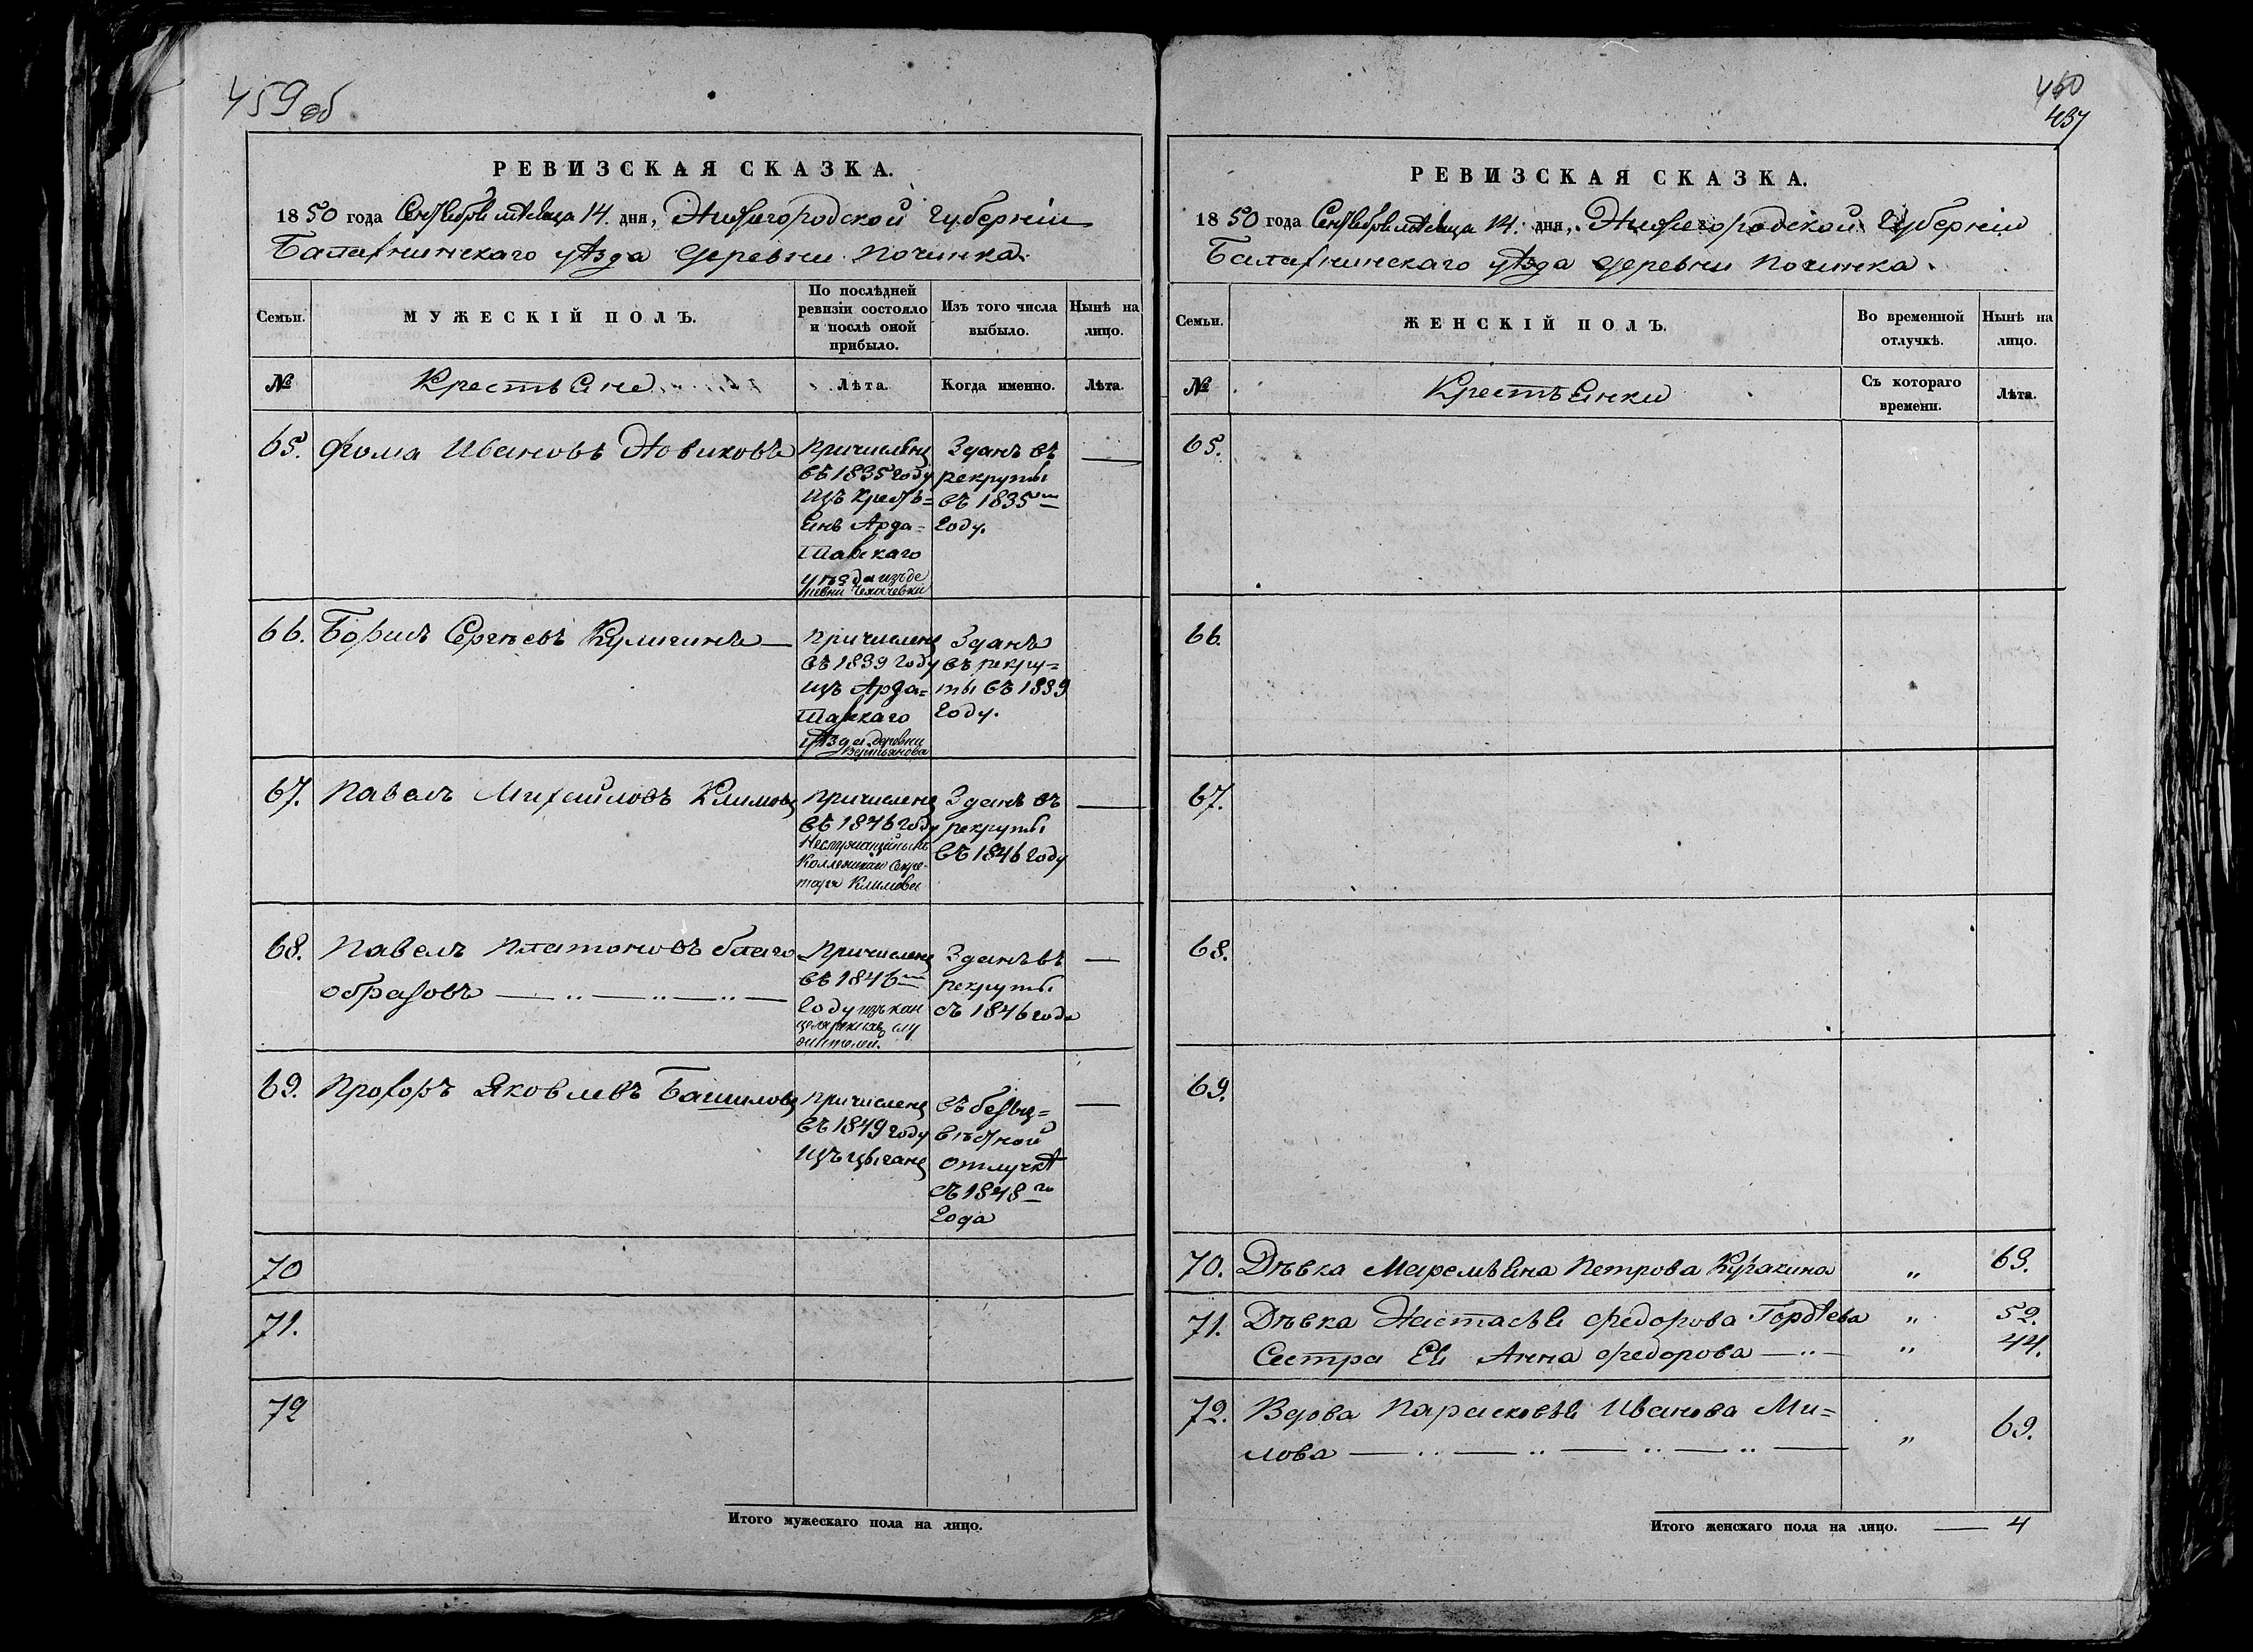 459 об
РЕВИЗСКАЯ СКАЗКА.
1850 года Сентября месяца 14. дня, Нижегородской губерніи
Балахнинскаго уѣзда деревни Починка.
Семьи.
МУЖЕСКІЙ ПОЛЪ.
По послѣдней
ревизіи состояло
и послѣ оной
прибыло.
Изъ того числа
выбыло.
Нынѣ на
лицо.
№
Крестьяне
Лѣта.
Когда именно.
Лѣта.
65. Фома Ивановъ Новиковъ
Причисленъ
въ 1835 году
изъ кресть=
янъ Арда=
товскаго
уѣзда изъ де
ревни
Зданъ въ
рекруты
въ 1835 м
году.
66. Борисъ Сергѣевъ Кулигинъ
Причисленъ
въ 1839 году
изъ Арда=
товскаго
уѣзда деревни
Зданъ
въ рекру=
ты въ 1839
году.
67. Павелъ Михайловъ Климовъ
Причисленъ
въ 1846 году
Коллежскаго Секре-
таря Климова
Зданъ въ
рекруты
въ 1846 году
68. Павелъ Платоновъ благо
образовъ
Причисленъ
въ 1846 м
году изъ кан
целярскихъ слу
жителей.
Зданъ въ
рекруты
съ 1846 года
69. Прохоръ Яковлевъ Башиловъ
Причисленъ
въ 1849 году
изъ цыганъ
въ безъиз=
вѣстной
отлучкѣ
съ 1848 го
года
70
71.
72
Итого мужескаго пола на лицо.
460
437
РЕВИЗСКАЯ СКАЗКА.
1850 года Сентября месяца 14. дня, Нижегородской Губерніи
Балахнинскаго уѣзда деревни Починка.
Семьи.
ЖЕНСКІЙ ПОЛЪ.
Во временной
отлучкѣ.
Нынѣ на
лицо.
№
Крестьянки
Съ котораго
времени.
Лѣта.
65.
66.
67.
68.
69.
70. Дѣвка Маремьяна Петрова Кугакина „ 63.
71. Дѣвка Настасья Федорова Гордѣева „ 52.
Сестра Ея Анна Федорова „ 44.
72. Вдова Парасковья Иванова Ми=
лова „ 69.
Итого женскаго пола на лицо. 4